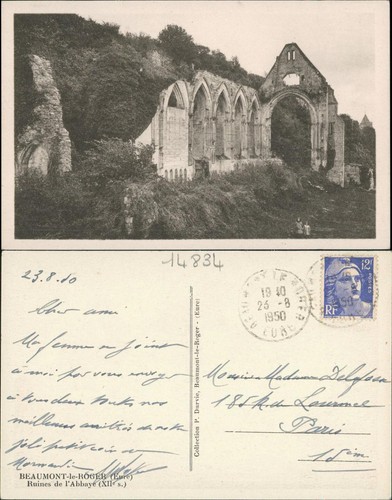 14834
23.8.50
Cher ami
Ma femme se joint
à moi pour vous envoyer
à tous deux toutes nos
meilleures amitiés de notre
joli petit coin de
Normandie
BEAUMONT-le-ROGER (Eure)
Ruines de l'Abbaye (XIIe s.)
Collection P. Darvie, Beaumont-le-Roger - (Eure)
BEAUMONT LE ROGER
19 10
23-8
1950
EURE
12F
RF
Monsieur Madame
185 R de
Paris
15ème